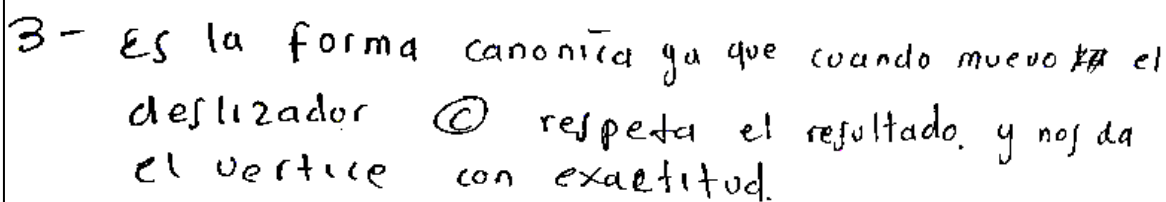 3- Es la forma canonica ya que cuando muevo el
deslizador © respeta el resultado. y nos da
el vertice con exactitud.